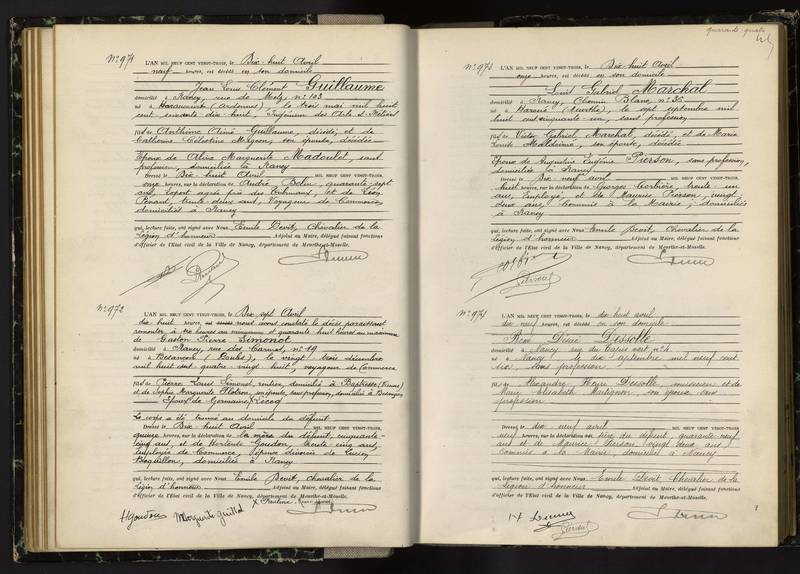 N° 971
L'AN MIL NEUF CENT VINGT-TROIS, le Dix-huit Avril
neuf heures, est décédé en son domicile
Jean Louis Clément Guillaume
domicilié à Nancy, rue de Metz, n° 103
né à Haraucourt (Ardennes), le trois mai mil huit
cent soixante dix huit, Ingénieur des Arts et Métiers
fils de Anthime Aimé Guillaume, décédé, et de
Catherine Célestine Mignon, son épouse, décédée
Epoux de Aline Marguerite Madoulet, sans
profession, domiciliée à Nancy
Dressé le Dix-huit Avril MIL NEUF CENT VINGT-TROIS,
onze heures, sur la déclaration de André Belin, quarante-sept
ans, Expert agréé près des tribunaux, et de Léon
Pénant, trente deux ans, Voyageur de Commerce,
domiciliés à Nancy
qui, lecture faite, ont signé avec Nous Emile Devit, Chevalier de la
Légion d'honneur Adjoint au Maire, délégué faisant fonctions
d'Officier de l'Etat civil de la Ville de Nancy, département de Meurthe-et-Moselle.
N° 972
L'AN MIL NEUF CENT VINGT-TROIS, le Dix sept Avril
dix huit heures, nous avons constaté le décès paraissant
remonter à heures au minimum et quarante huit heures au maximum
de Gaston Pierre Simonot
domicilié à Nancy, rue des Carmes, n° 19
né à Besançon (Doubs), le vingt trois décembre
mil huit cent quatre vingt huit, voyageur de Commerce
fils de Pierre Louis Simonot, rentier, domicilié à
et de Sophie Marguerite sans profession, domiciliée à Besançon
Epoux de Germaine Lecoq
Le corps a été trouvé au domicile du défunt
Dressé le Dix-huit Avril MIL NEUF CENT VINGT-TROIS,
quinze heures, sur la déclaration de la mère du défunt, cinquante-
cinq ans, et de Hortense Goudon, trente cinq ans,
employée de Commerce, épouse divorcée de Lucien
domiciliés à Nancy
qui, lecture faite, ont signé avec Nous Emile Devit, chevalier de la
Légion d'honneur Adjoint au Maire, délégué faisant fonctions
d'Officier de l'Etat civil de la Ville de Nancy, département de Meurthe-et-Moselle.
HGoudon Marguerite
quarante-quatre
N° 973
L'AN MIL NEUF CENT VINGT-TROIS, le Dix-huit Avril
onze heures, est décédé en son domicile
Emile Gabriel Marchal
domicilié à Nancy, Chemin Blanc, n° 35
né à Haroué (Meurthe), le sept septembre mil
huit cent cinquante-un, sans profession
fils de Victor Gabriel Marchal, décédé, et de Marie
Louise Malidième, son épouse, décédée
Epoux de Augustine Eugénie Pierson, sans profession,
domiciliée à Nancy
Dressé le Dix-neuf avril MIL NEUF CENT VINGT-TROIS,
huit heures, sur la déclaration de Georges Corbière, trente un
ans, Employé, et de Maurice Pierson, vingt
deux ans, Commis à la Mairie, domiciliés
à Nancy
qui, lecture faite, ont signé avec Nous Emile Devit, Chevalier de la
Légion d'honneur Adjoint au Maire, délégué faisant fonctions
d'Officier de l'Etat civil de la Ville de Nancy, département de Meurthe-et-Moselle.
N° 974
L'AN MIL NEUF CENT VINGT-TROIS, le dix huit avril
dix neuf heures, est décédé en son domicile
René Désiré Dessolle
domicilié à Nancy, rue du n° 4
né à Nancy, le dix septembre mil neuf cent
six, sans profession
fils de Alexandre Henri Dessolle, musicien et de
Marie Elisabeth son épouse sans
profession
Dressé le dix neuf avril MIL NEUF CENT VINGT-TROIS,
neuf heures, sur la déclaration du père du défunt, quarante neuf
ans et de Maurice Pierson, vingt deux ans
Commis à la Mairie domiciliés à Nancy
qui, lecture faite, ont signé avec Nous Emile Devit, Chevalier de la
Légion d'honneur Adjoint au Maire, délégué faisant fonctions
d'Officier de l'Etat civil de la Ville de Nancy, département de Meurthe-et-Moselle.